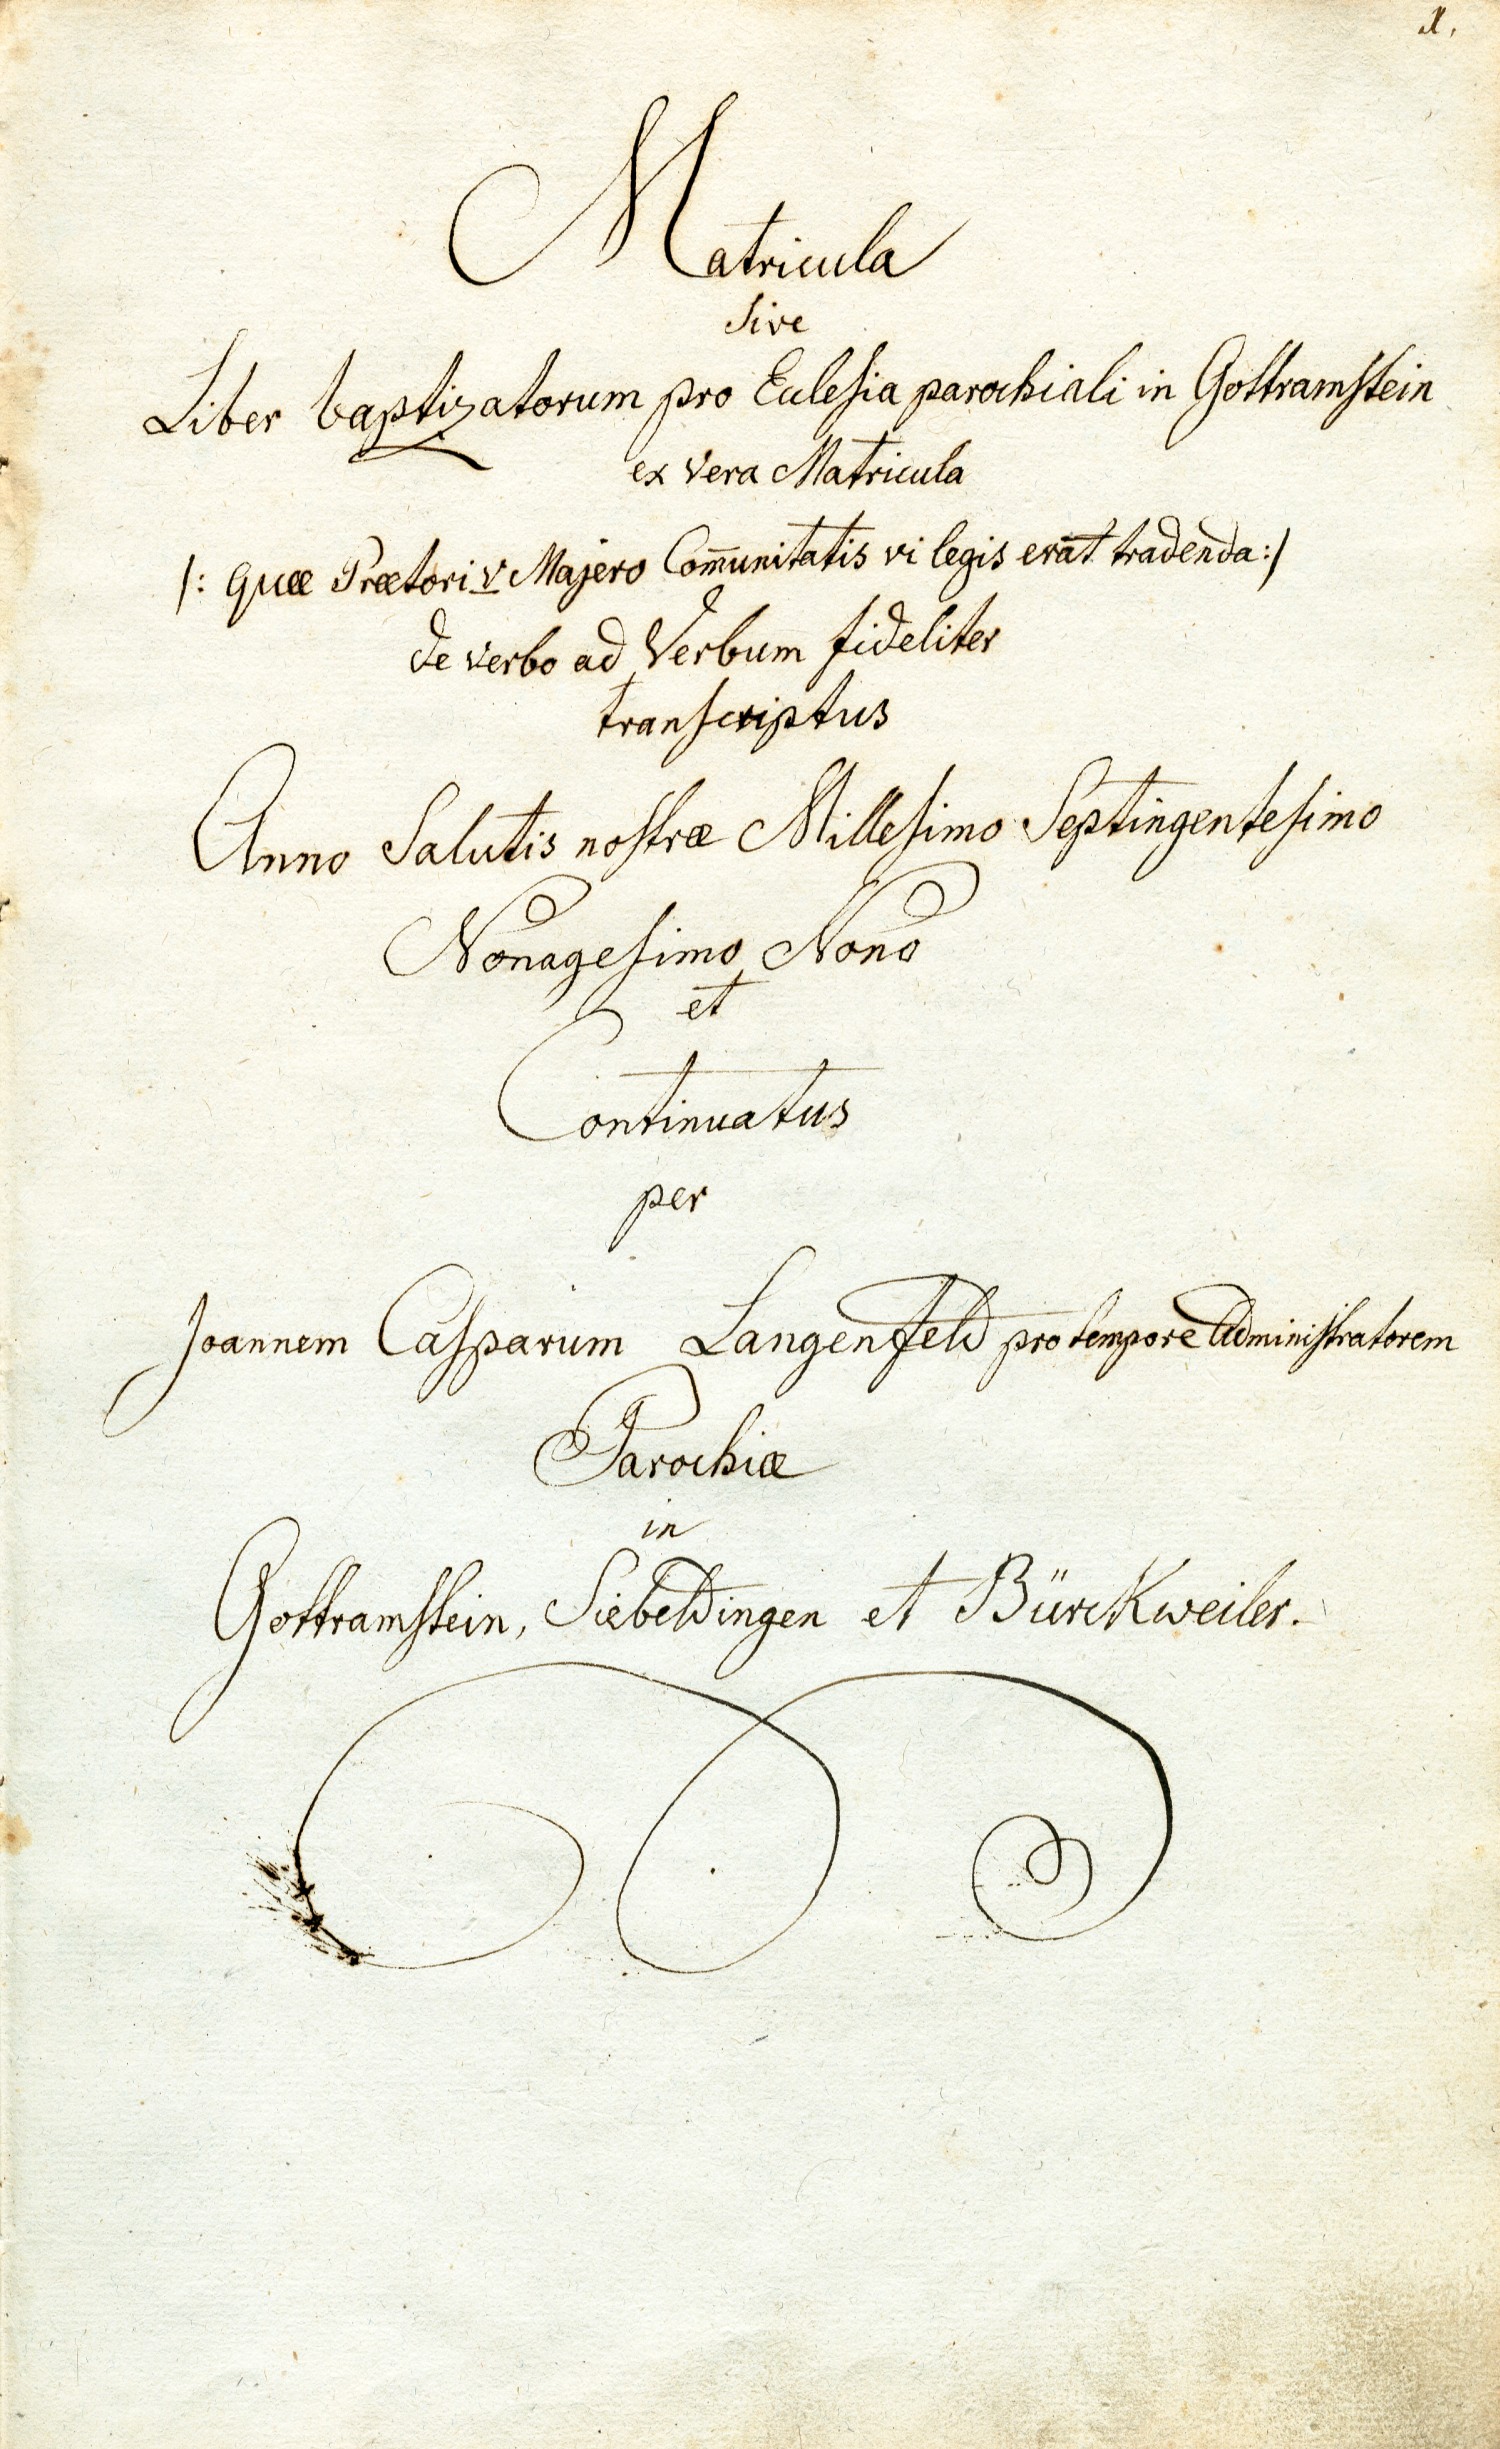 1.
Matricula
sive
Liber baptizatorum pro Eclesia parochiali in Gottramstein
ex vera Matricula
/: quæ Prætori v Majero Com̄unitatis vi legis erat tradenda :/
de verbo ad Verbum fideliter
transcriptus
Anno Salutis nostræ Millesimo Septingentesimo
Nonagesimo Nono
et
Continuatus
per
Joannem Casparum Langenfeld pro tempore Administratorem
Parochiæ
in
Gottramstein, Siebeldingen et Bürckweiler.